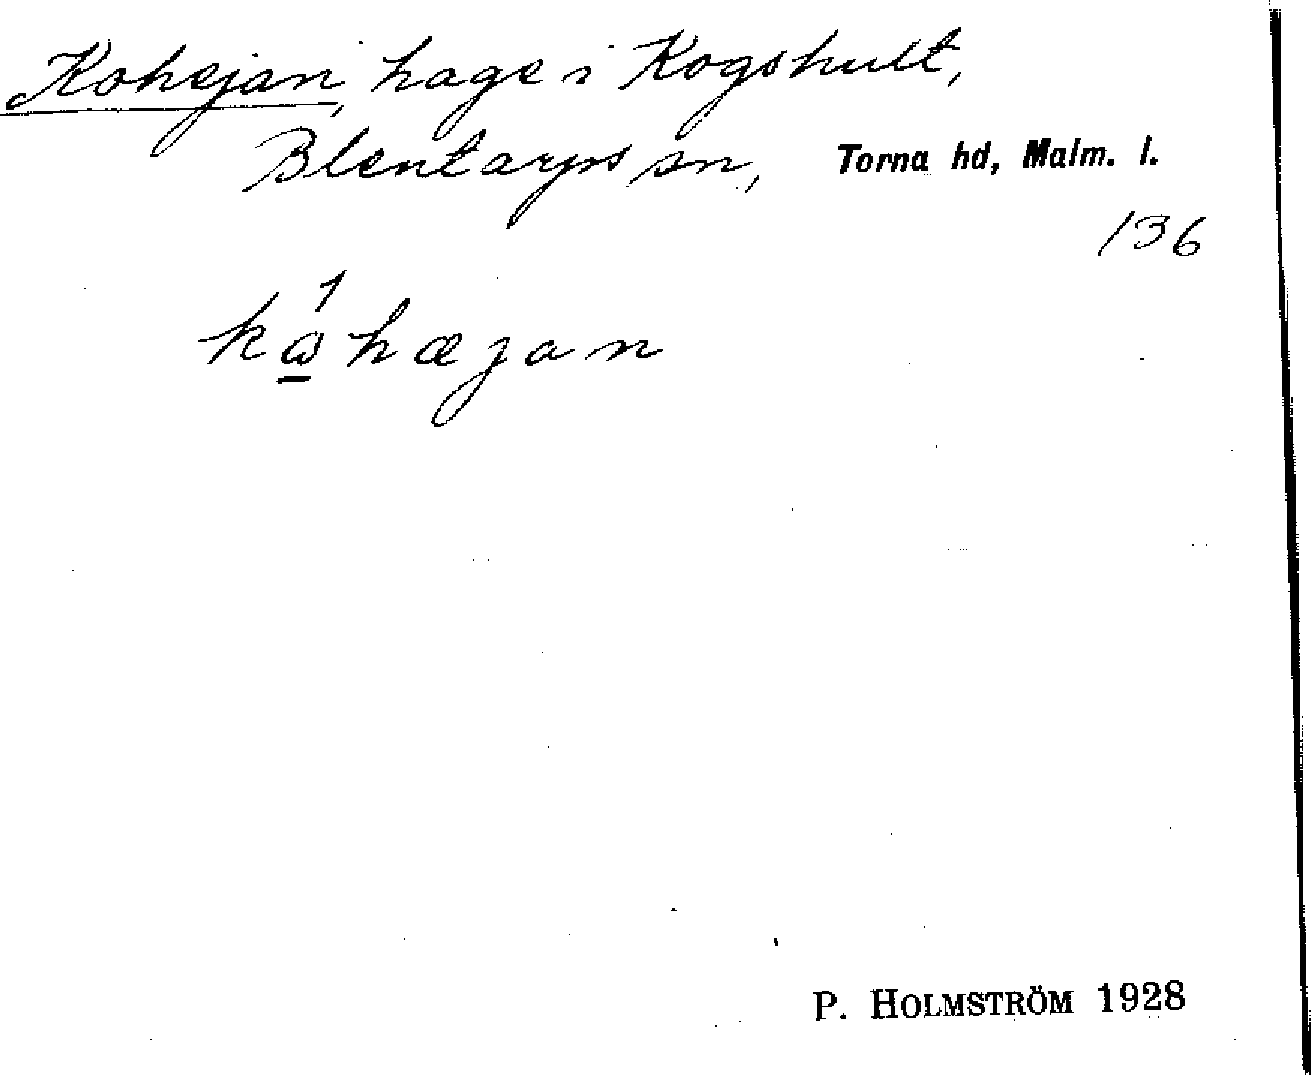 Kohejan, hage i Kogshult,
Blentarps sn, Torna hd, Malm. l.
136
kώ̱hæjan
P. HOLMSTRÖM 1928